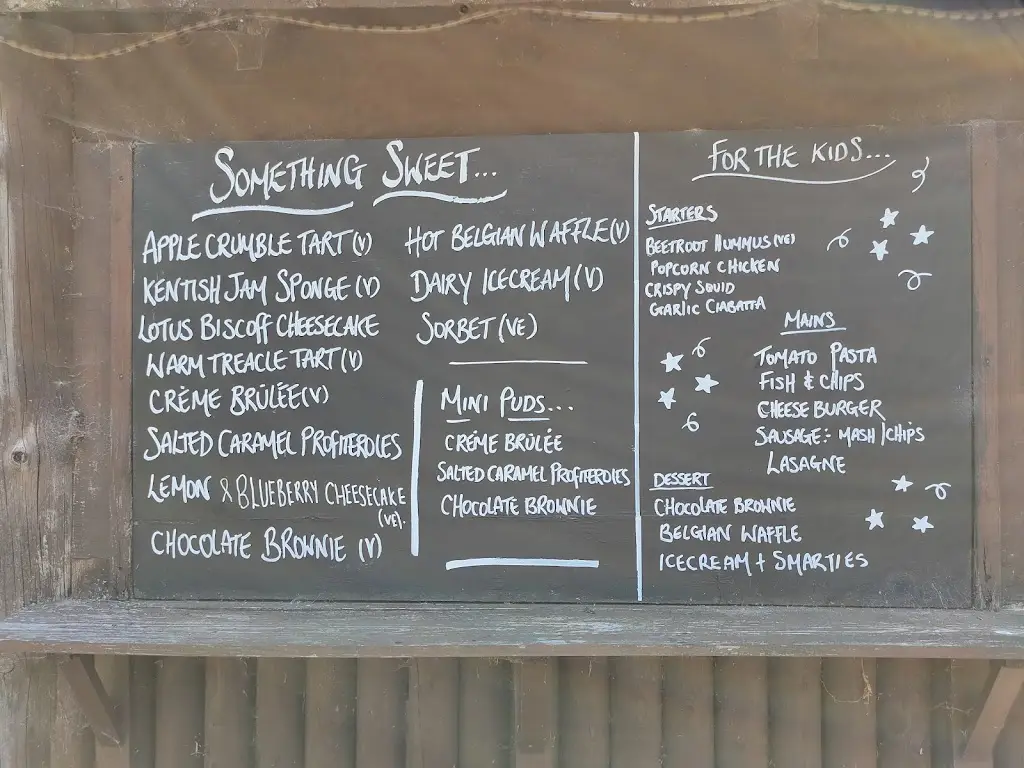 SOMETHING SWEET...
APPLE CRUMBLE TART (V)
KENTISH JAM SPONGE (V)
LOTUS BISCOFF CHEESECAKE
WARM TREACLE TART (V)
CRÈME BRÛLÉE (V)
SALTED CARAMEL PROFITEROLES
LEMON & BLUEBERRY CHEESECAKE
(VE).
CHOCOLATE BROWNIE (V)
HOT BELGIAN WAFFLE (V)
DAIRY ICECREAM (V)
SORBET (VE)
MINI PUDS...
CRÉME BRÛLÉE
SALTED CARAMEL PROFITEROLES
CHOCOLATE BROWNIE
FOR THE KIDS...
STARTERS
BEETROOT HUMMUS (VE)
POPCORN CHICKEN
CRISPY SQUID
GARLIC CIABATTA
MAINS
TOMATO PASTA
FISH & CHIPS
CHEESE BURGER
SAUSAGE: MASH/CHIPS
LASAGNE
DESSERT
CHOCOLATE BROWNIE
BELGIAN WAFFLE
ICECREAM + SMARTIES